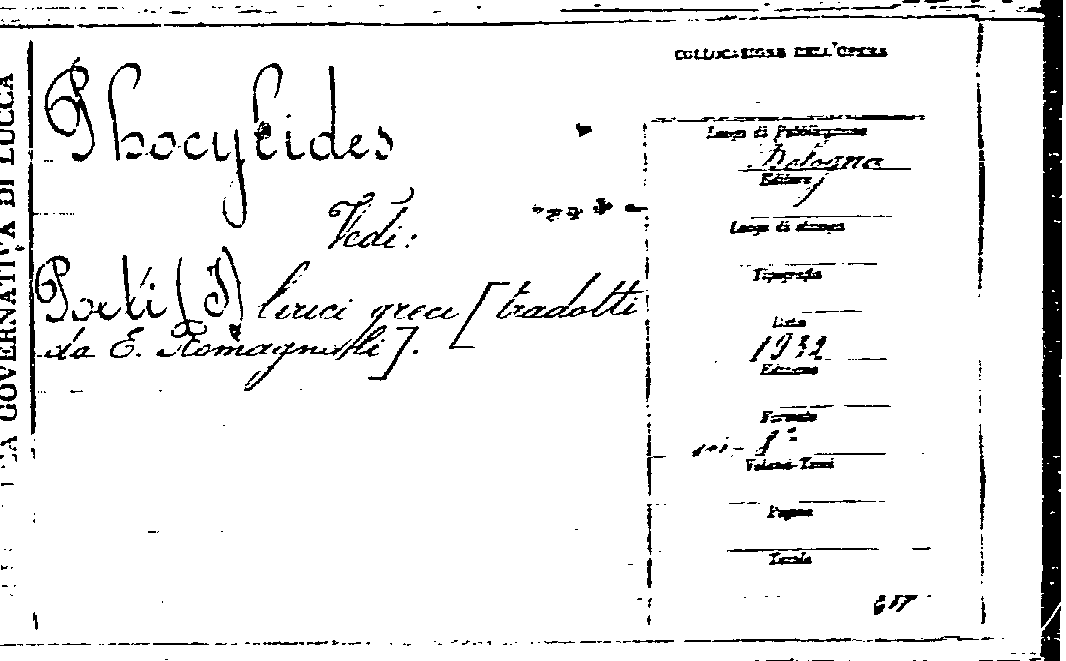 GOVERNATIVA DI LUCCA
COLLOCAZIONE DELL'OPERA
Phocylides
Vedi:
Poeti (I) lirici greci [tradotti
da E. Romagnoli].
Luogo di Pubblicazione
Bologna
Editore
Luogo di stampa
Tipografia
Data
1932
Edizione
Formato
in-8°
Volumi-Tomi
Pagine
Tavole